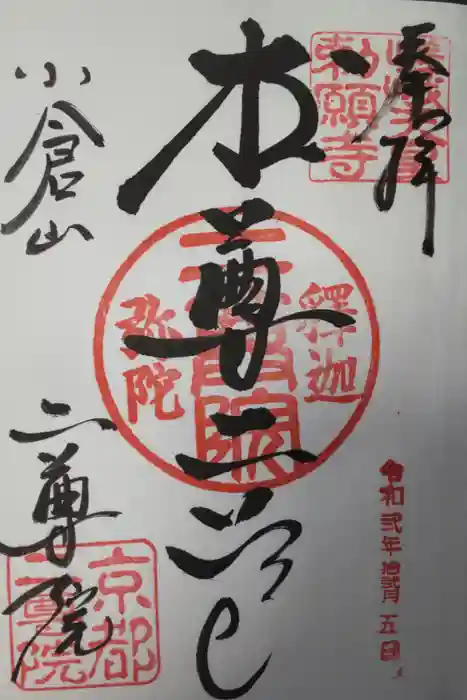 奉拝
勅願寺
令和弐年拾弐月五日
本尊二尊
釋迦
弥陀
二尊院
小倉山
二尊院
京都
二尊院